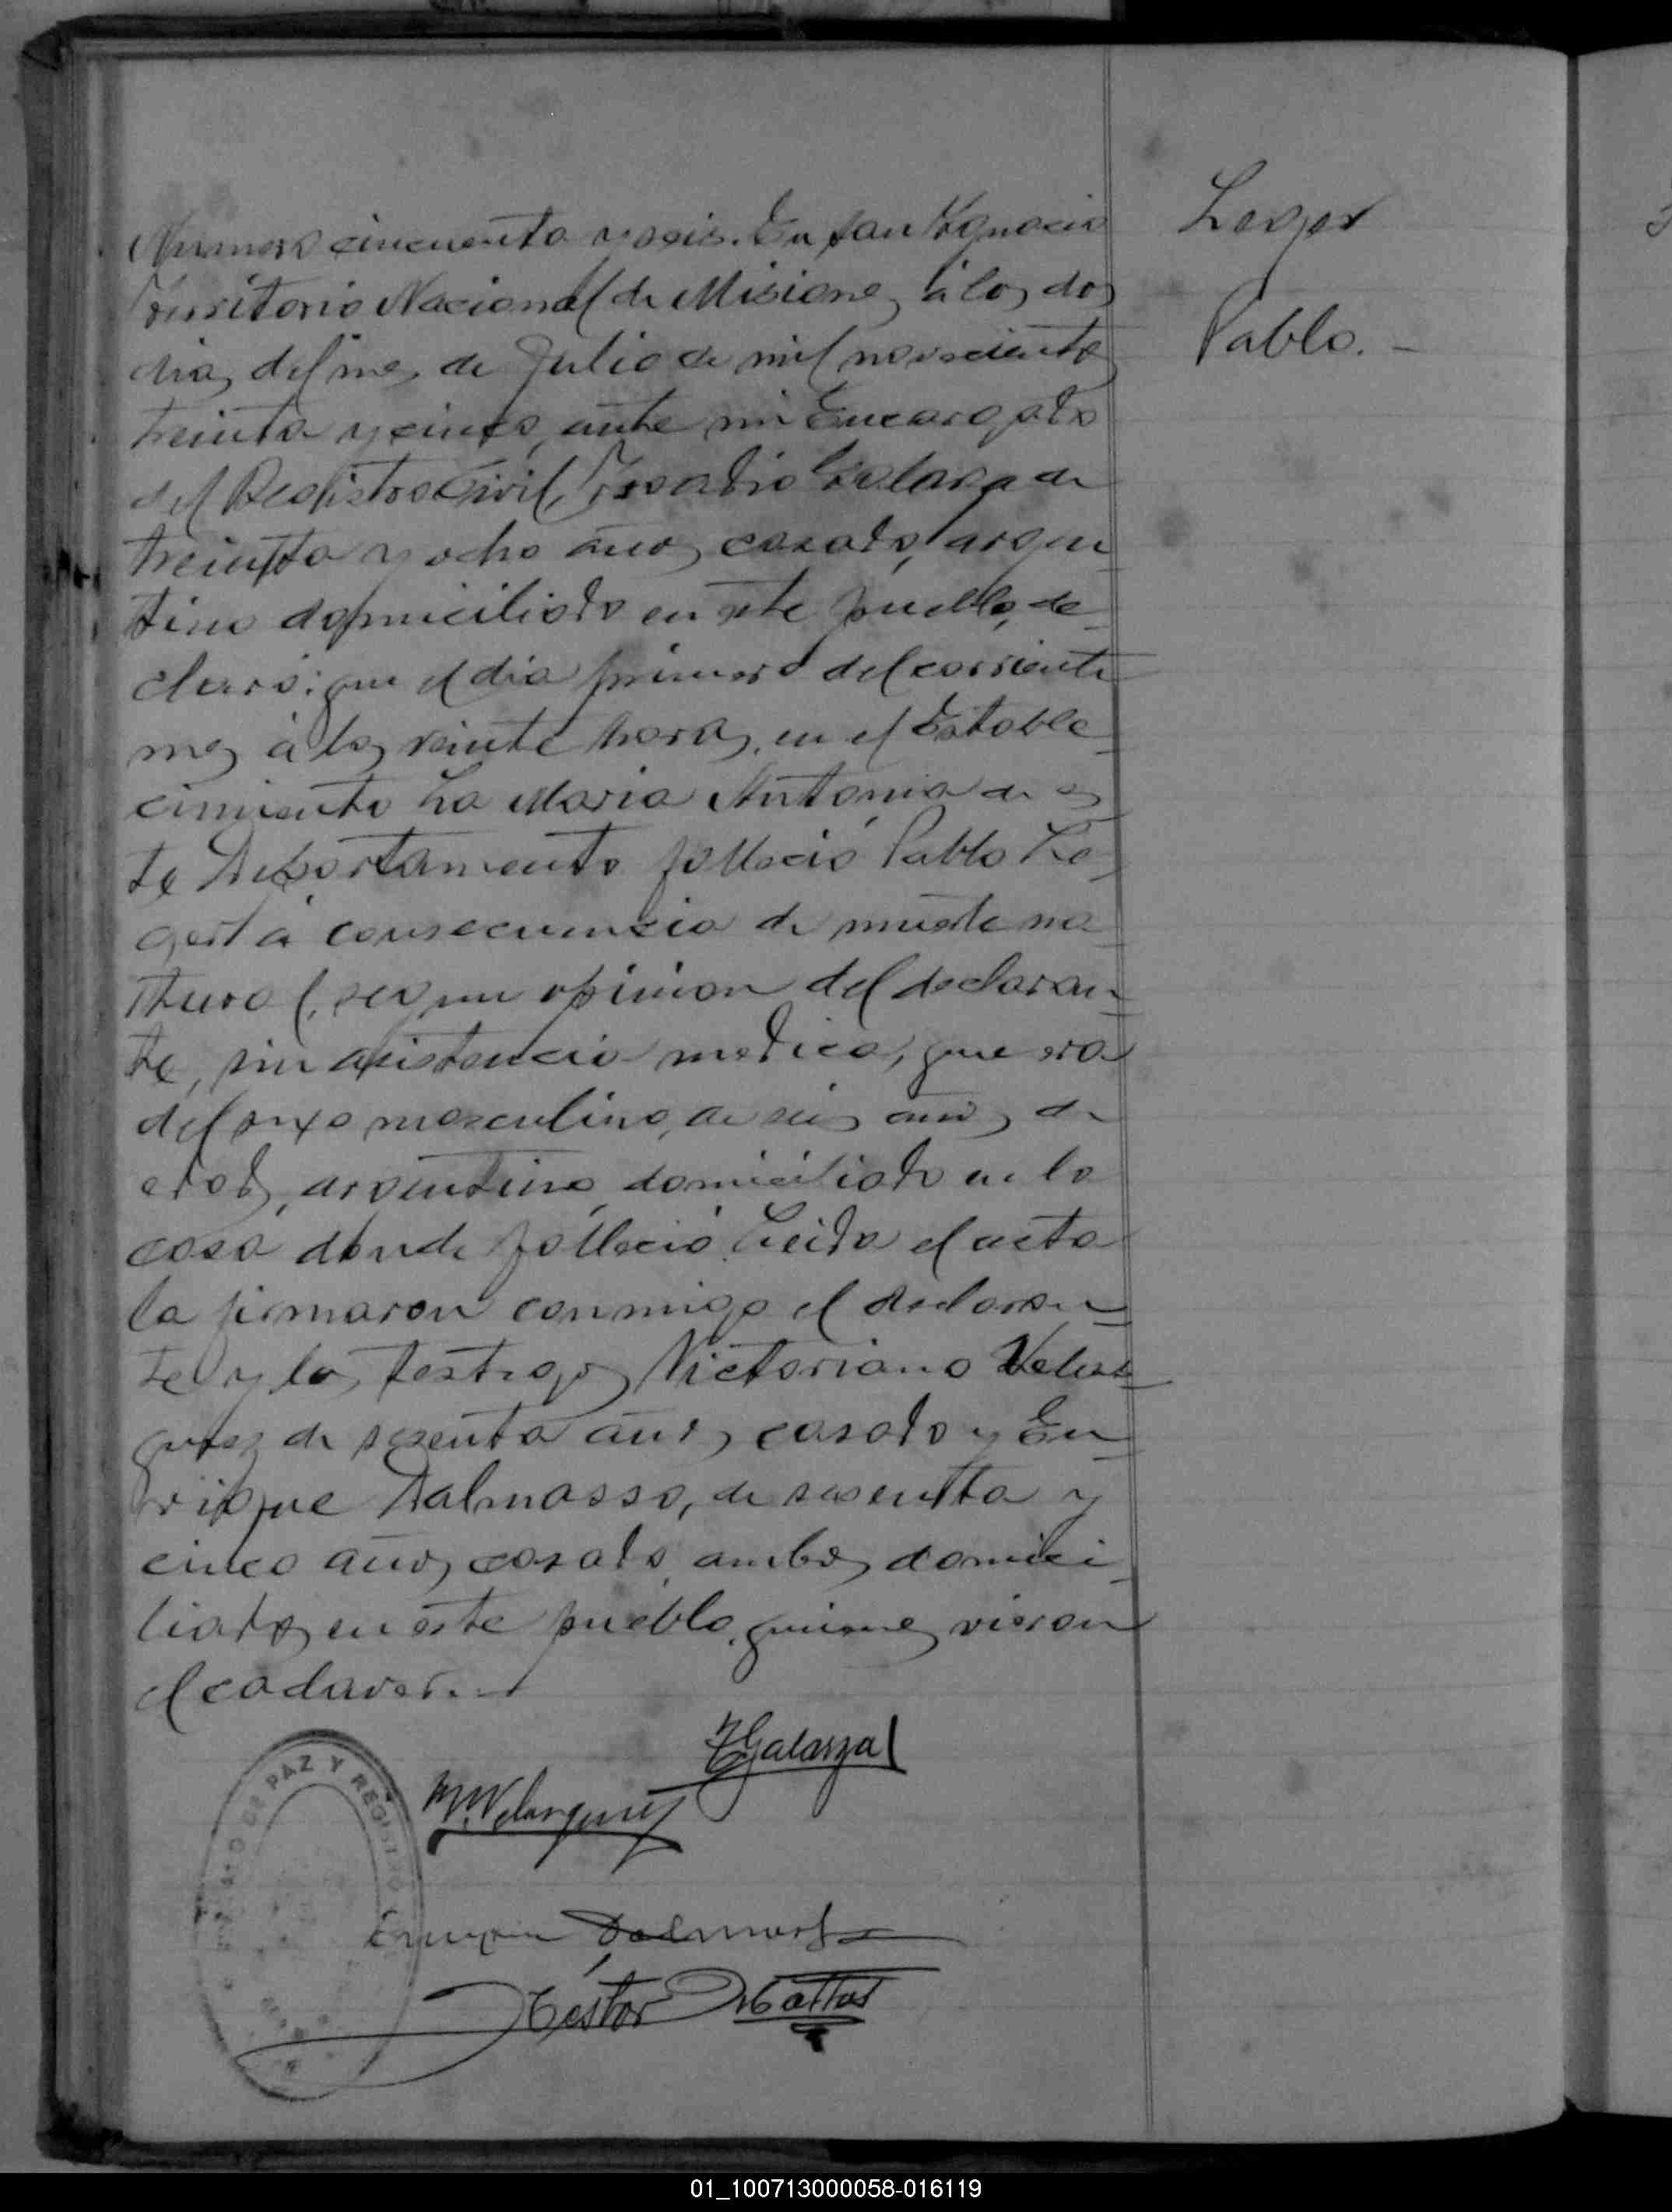 Numero cincuenta y seis. En San Ygnacio
Territorio Nacional de Misiones, á los dos
dias del mes de Julio de mil novecientos
treinta y cinco, ante mi Encargado
del Registro Civil, Galarza de
treinta y ocho años, casado, argen
tino domiciliado en este pueblo, de-
claró: que el dia primero del corriente
mes á las veinte horas, en el Estable-
cimiento La Maria Antonia de es
te Departamento falleció Pablo Le-
ger á consecuencia de muerte na-
tural, segun opinion del declaran-
te, sin asistencia medica, que era
del sexo masculino, de seis años de
edad, argentino, domiciliado en la
casa donde falleció. Leida el acta
la firmaron conmigo el declaran-
te y los testigos Victoriano Velas-
quez de sesenta años, casado y En-
rique Dalmasso, de sesenta y
cinco años, casado, ambos domici-
liados en este pueblo, quienes vieron
el cadaver.
Leger
Pablo.-
Galarza
Velasquez
Enrique Dalmasso
Nestor
PAZ Y REGISTRO
01_100713000058-016119